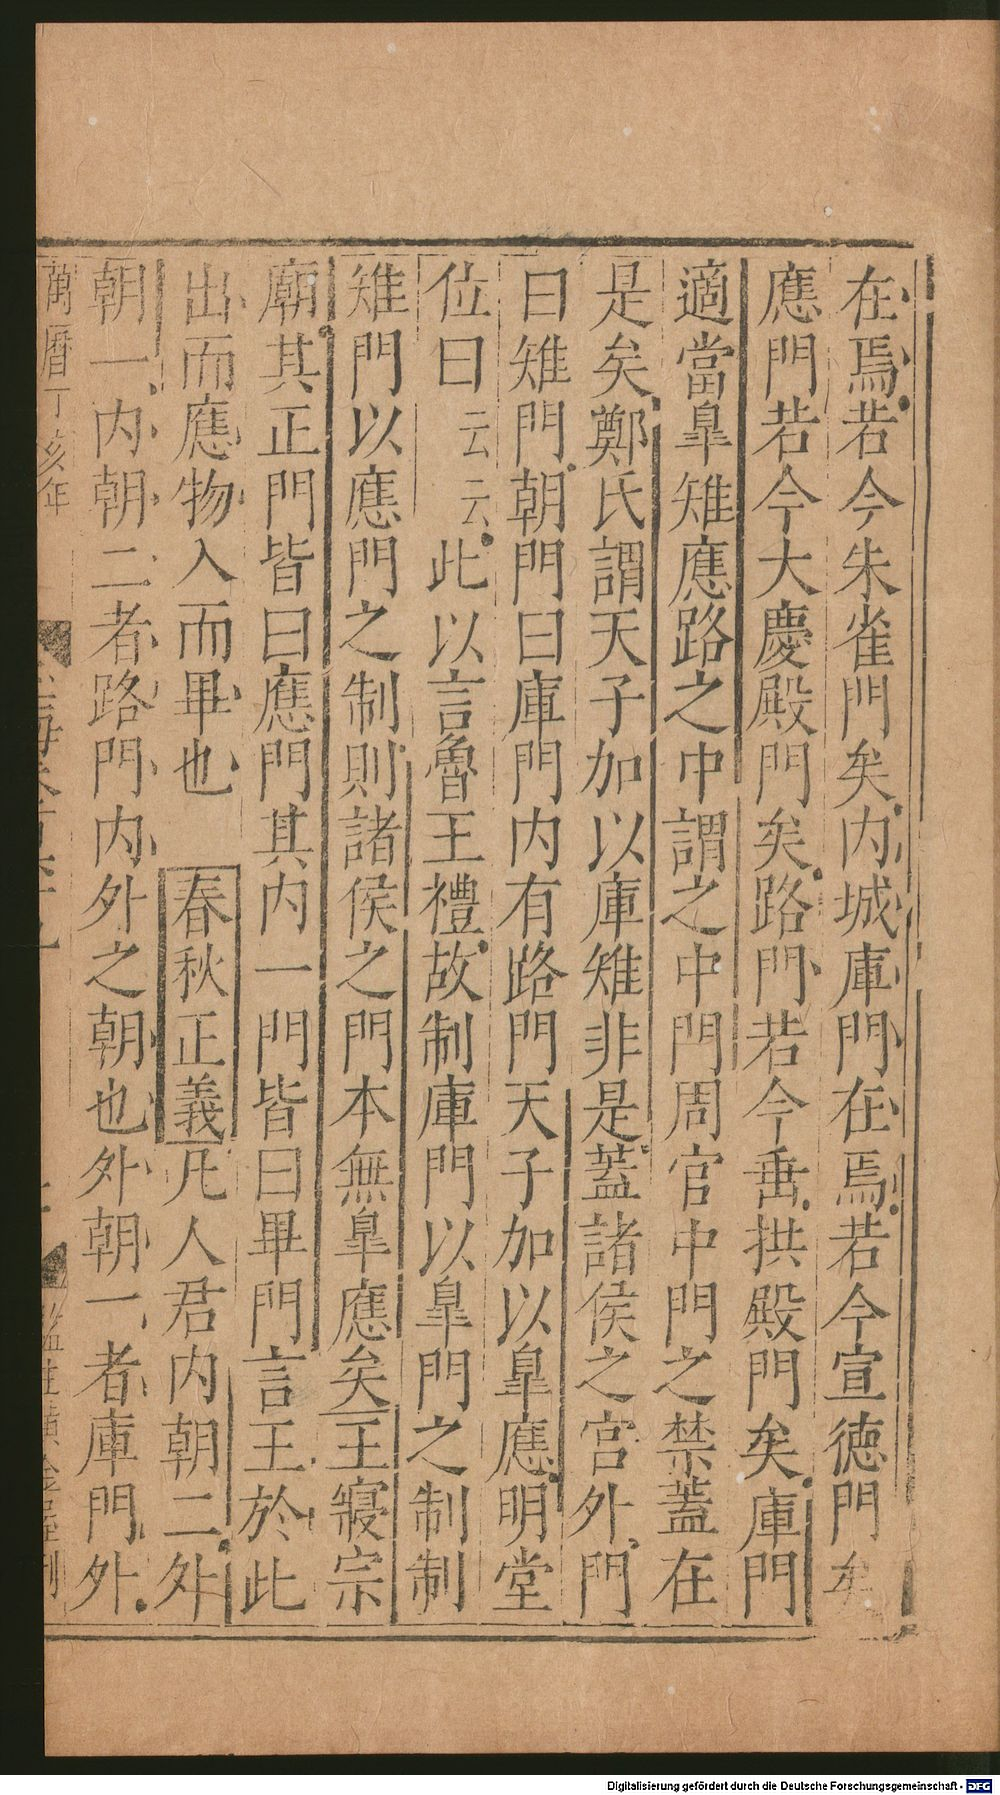 在焉若今朱雀門矣内城庫門在焉若今宣徳門矣
應門若今大慶殿門矣路門若今垂拱殿門矣庫門
適當臯雉應路之中謂之中門周官中門之禁蓋在
是矣鄭氏謂天子加以庫雉非是蓋諸侯之宫外門
曰雉門朝門曰庫門内有路門天子加以臯應明堂
位曰云云此以言魯王禮故制庫門以臯門之制制
雉門以應門之制則諸侯之門本無臯應矣王寢宗
廟其正門皆曰應門其内一門皆曰畢門言王於此
出而應物入而畢也 春秋正義凡人君内朝二外
朝一内朝二者路門内外之朝也外朝一者庫門外
萬曆丁亥年
Digitalisierung gefördert durch die Deutsche Forschungsgemeinschaft - DFG